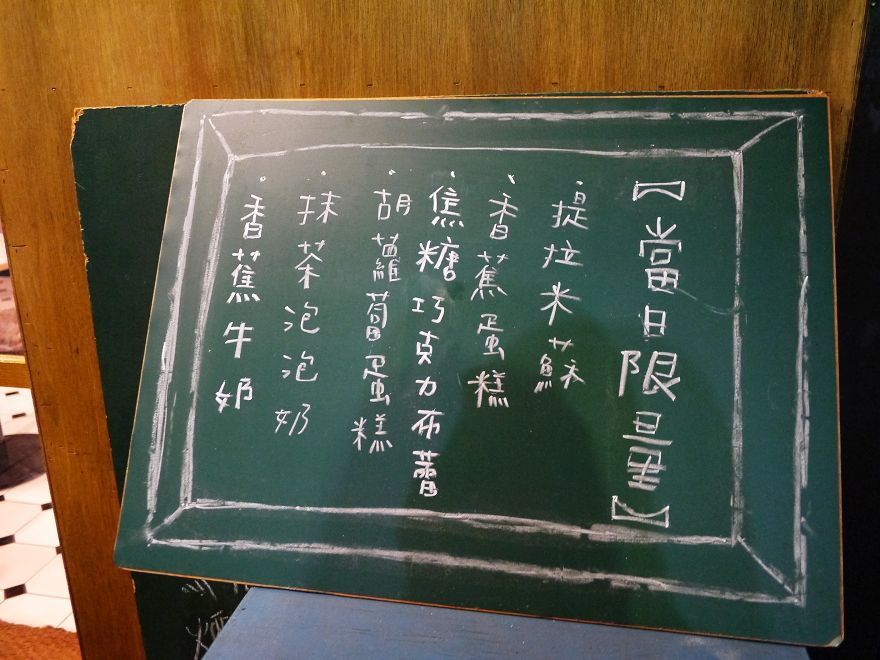 【當日限量】
·提拉米蘇
·香蕉蛋糕
·焦糖巧克力布蕾
·胡蘿蔔蛋糕
·抹茶泡泡奶
·香蕉牛奶